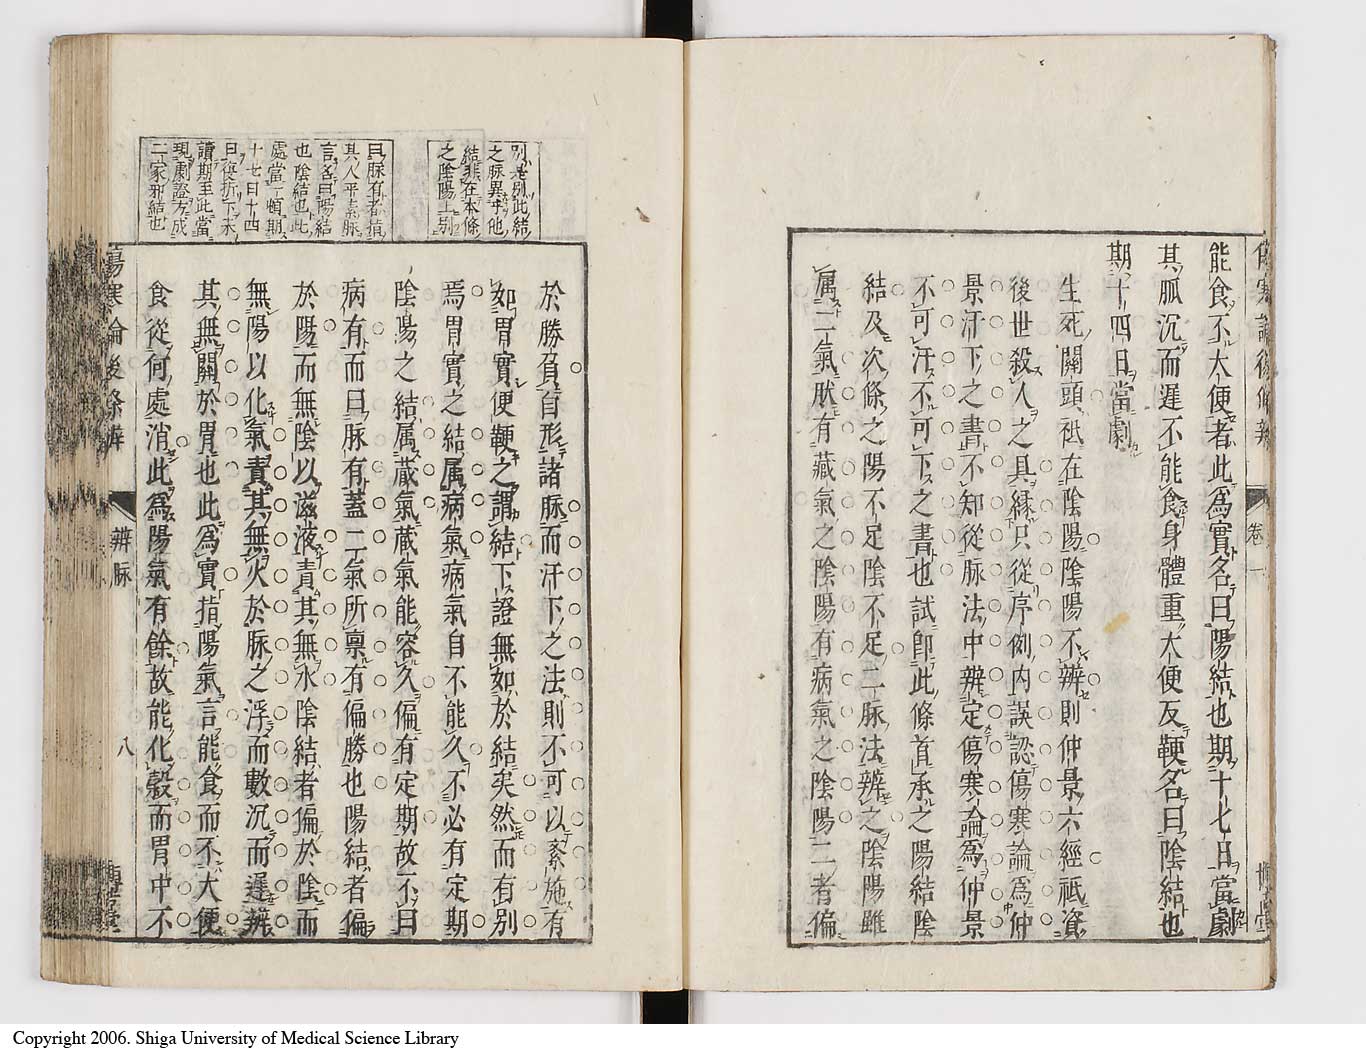 傷寒論後條辨
卷一
能食不大便者此為實名曰陽結也期十七日當劇
其脈沉而遲不能食身體重大便反鞕名曰陰結也
期十四日當劇
生死關頭祗在陰陽陰陽不辨則仲景六經祗資
後世殺人之具緣只從序例內誤認傷寒論為仲
景汗下之書不知從脈法中辨定傷寒論為仲景
不可汗不可下之書也試卽此條首承之陽結陰
結及次條之陽不足陰不足二脈法辨之陰陽雖
属二氣狀有藏氣之陰陽有病氣之陰陽二者偏
別是別此結
之脈異乎他
結非在本條
之陰陽上別
於勝負自形諸脈而汗下之法則不可以紊施有
如胃實便鞕之謂結下證無如於結矣然而有別
焉胃實之結属病氣病氣自不能久不必有定期
陰陽之結属藏氣藏氣能容久偏有定期故不曰
病有而曰脈有蓋二氣所稟有偏勝也陽結者偏
於陽而無陰以滋液責其無水陰結者偏於陰而
無陽以化氣責其無火於脈之浮而數沉而遲辨
其無關於胃也此為實指陽氣言能食而不大便
食從何處消此為陽氣有餘故能化穀而胃中不
曰脈有者指
其人平素脈
言名曰陽結
也陰結也此
處當一頓期
十七日十四
曰後折下未
讀期至此當
現劇證方成
二家邪結也
傷寒論後條辨
辨脈
八